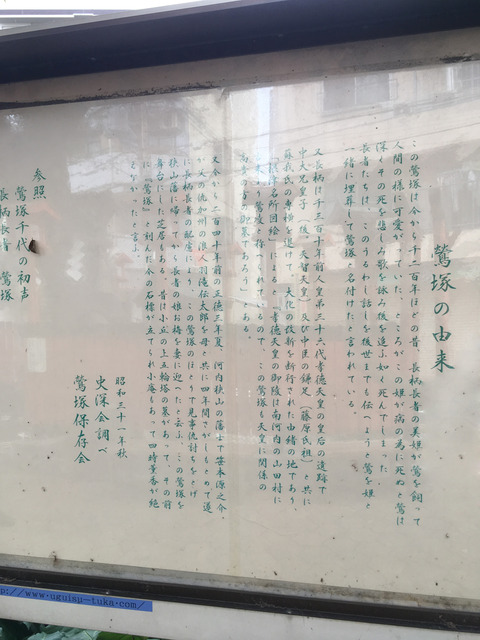 鶯塚の由来
この鶯塚は今から千二百年ほどの昔、長柄長者の美姫が鶯を飼って
人間の様に可愛がっていた、ところがこの姫が病の為に死ぬと鶯は
深くその死を悲しみ歌を詠み後を追ふ如く死んでしまった、
長者たちは、このうるわし話しを後世までも伝へようと鶯を姫と
一緒に埋葬して鶯塚と名付けたと言われている。
又長柄は千三百十年前人皇第三十六代孝徳天皇の皇后の遺跡で
中大兄皇子（後、天智天皇）及び中臣の鎌足（藤原氏祖）と共に
蘇我氏の専横を避けて、大化の改新を断行された由緒の地であり
名所図絵」による「孝徳天皇の御陵は南河内の山田村に
鶯陵と称へられているもので、この鶯塚も天皇に関係の
である。
又今から二百四十年前の正徳三年夏、河内狭山の藩士で笹米源之介、
天の仇和州の浪人羽滝伝太郎を母と共に四年間さがしもとめて遂
に長柄長者の配慮により、この鶯塚のほとりで見事仇討ちをとげ
狭山藩に帰ってから長者の娘お梅を妻に迎へたと云ふ、この鶯塚を
舞台にした芝居もある。昔は小丘の上五輪塔の墓があって、その前
に『鶯塚』と刻んだ今の石標が立てられ小庵もあって四時薫香が絶
えなかったと言ふ。
昭和三十一年秋
史深会調べ
鶯塚保存会
参照
鶯塚千代の初声
長柄長者 鶯塚
p://www.uguisu-tuka.com/